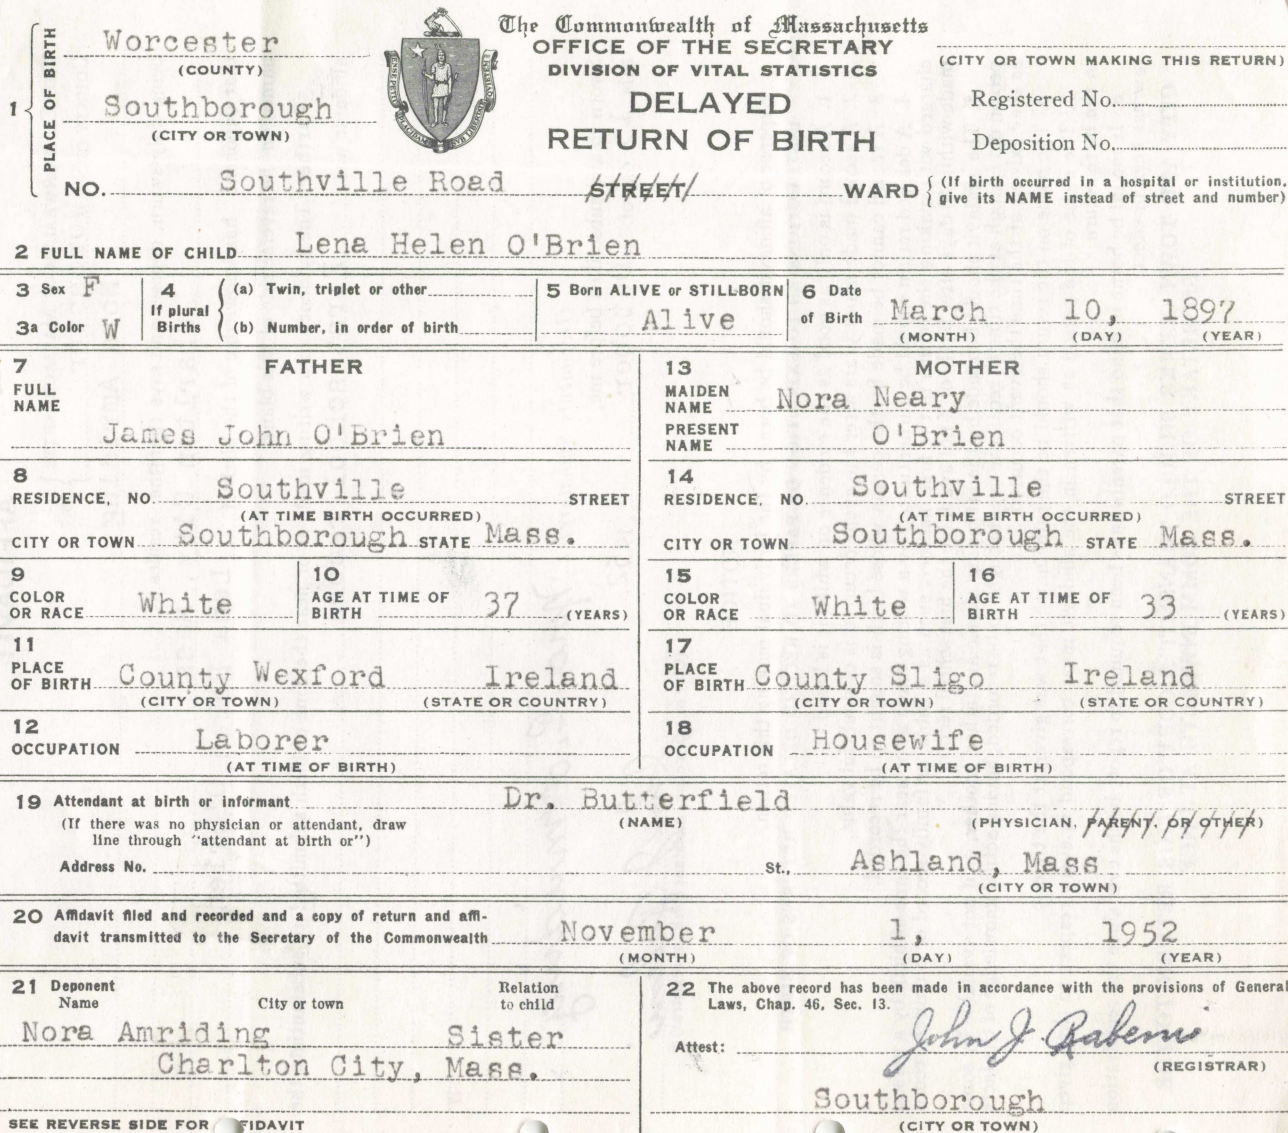 The Commonwealth of Massachusetts
OFFICE OF THE SECRETARY
DIVISION OF VITAL STATISTICS
DELAYED
RETURN OF BIRTH
(CITY OR TOWN MAKING THIS RETURN)
Registered No.
Deposition No.
1 PLACE OF BIRTH
Worcester
(COUNTY)
Southborough
(CITY OR TOWN)
NO. Southville Road STREET WARD (If birth occurred in a hospital or institution, give its NAME instead of street and number)
2 FULL NAME OF CHILD Lena Helen O'Brien
3 Sex F
3a Color W
4 If plural Births
(a) Twin, triplet or other
(b) Number, in order of birth
5 Born ALIVE or STILLBORN
Alive
6 Date of Birth March 10, 1897
(MONTH) (DAY) (YEAR)
7 FATHER
FULL NAME
James John O'Brien
8 RESIDENCE, NO. Southville STREET
(AT TIME BIRTH OCCURRED)
CITY OR TOWN Southborough STATE Mass.
9 COLOR OR RACE White
10 AGE AT TIME OF BIRTH 37 (YEARS)
11 PLACE OF BIRTH County Wexford Ireland
(CITY OR TOWN) (STATE OR COUNTRY)
12 OCCUPATION Laborer
(AT TIME OF BIRTH)
13 MOTHER
MAIDEN NAME Nora Neary
PRESENT NAME O'Brien
14 RESIDENCE, NO. Southville STREET
(AT TIME BIRTH OCCURRED)
CITY OR TOWN Southborough STATE Mass.
15 COLOR OR RACE White
16 AGE AT TIME OF BIRTH 33 (YEARS)
17 PLACE OF BIRTH County Sligo Ireland
(CITY OR TOWN) (STATE OR COUNTRY)
18 OCCUPATION Housewife
(AT TIME OF BIRTH)
19 Attendant at birth or informant Dr. Butterfield
(NAME) (PHYSICIAN, PARENT, OR OTHER)
(If there was no physician or attendant, draw
line through "attendant at birth or")
Address No. St., Ashland, Mass
(CITY OR TOWN)
20 Affidavit filed and recorded and a copy of return and affi-
davit transmitted to the Secretary of the Commonwealth November 1, 1952
(MONTH) (DAY) (YEAR)
21 Deponent Name City or town Relation to child
Nora Amriding Sister
Charlton City, Mass.
SEE REVERSE SIDE FOR FIDAVIT
22 The above record has been made in accordance with the provisions of General
Laws, Chap. 46, Sec. 13.
Attest: John J.
(REGISTRAR)
Southborough
(CITY OR TOWN)